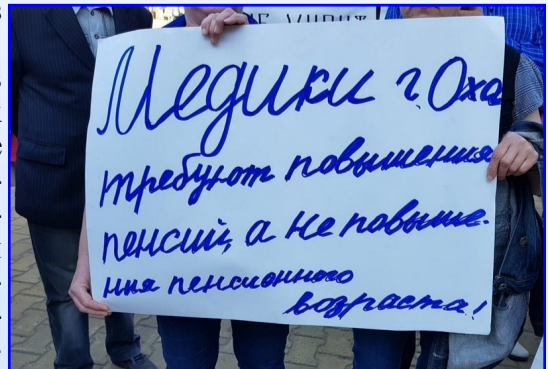 Медики г. Оха
требуют повышения
пенсий, а не повыше-
ния пенсионного
возраста!